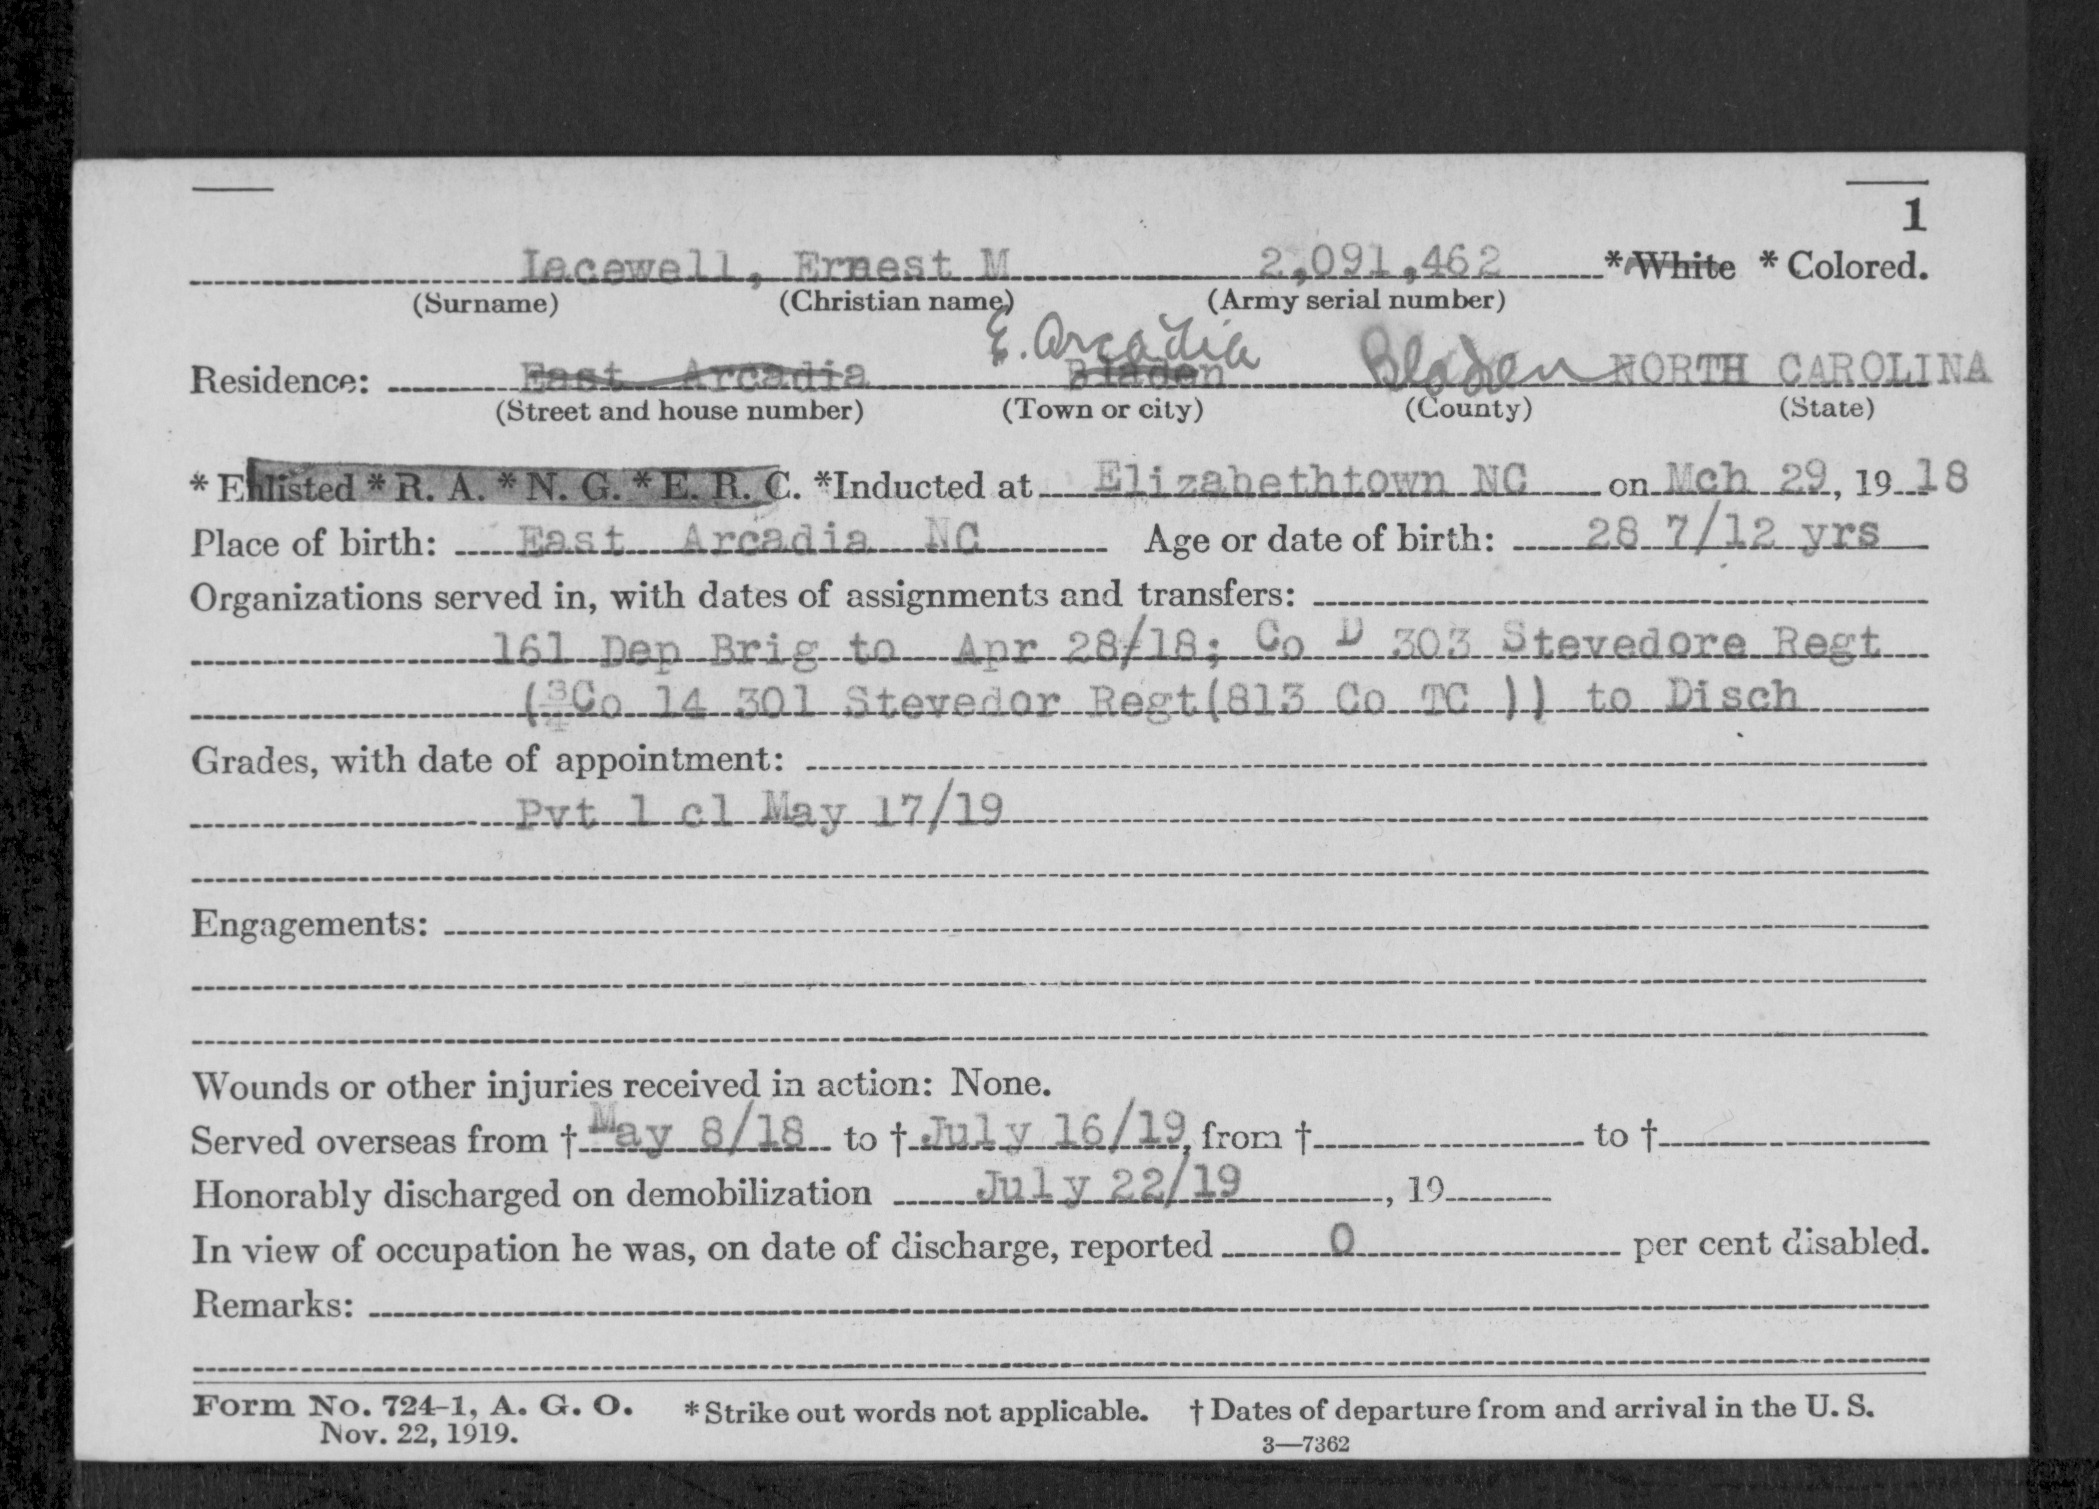 1
Lacewell, Ernest M 2,091,462 *White * Colored.
(Surname) (Christian name) (Army serial number)
E. Arcadia
Residence: East Arcadia Bladen Bladen NORTH CAROLINA
(Street and house number) (Town or city) (County) (State)
* Enlisted * R. A. * N. G. * E. R. C. *Inducted at Elizabethtown NC on Mch 29, 19 18
Place of birth: East Arcadia NC Age or date of birth: 28 7/12 yrs
Organizations served in, with dates of assignments and transfers:
161 Dep Brig to Apr 28/18; Co D 303 Stevedore Regt
(Co 14 301 Stevedor Regt(813 Co TC )) to Disch
Grades, with date of appointment:
Pvt 1 cl May 17/19
Engagements:
Wounds or other injuries received in action: None.
Served overseas from † May 8/18 to † July 16/19, from † to †
Honorably discharged on demobilization July 22/19, 19
In view of occupation he was, on date of discharge, reported 0 per cent disabled.
Remarks:
Form No. 724-1, A. G. O. *Strike out words not applicable. † Dates of departure from and arrival in the U. S.
Nov. 22, 1919. 3—7362